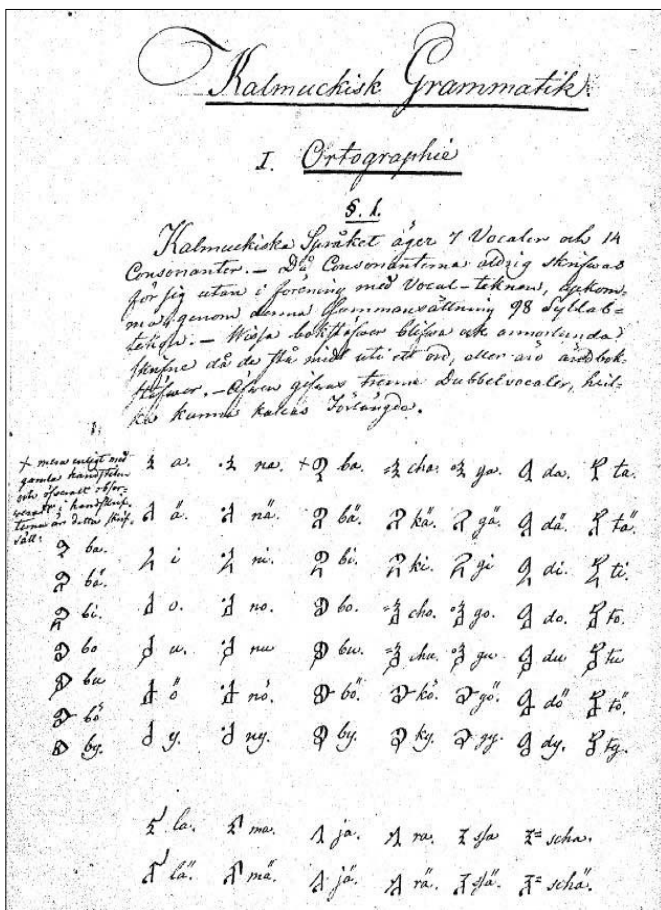 Kalmuckisk Grammatik.
I. Ortographie
§. 1.
Kalmuckiska Språket äger 7 Vocaler och 14
Consonanter. – Då Consonanterna aldrig skrifwas
för sig utan i förening med Vocal-teknen, upkom-
ma genom denna Sammansättning 98 Syllab-
tekn. – Wissa bokstäfwer blifwa ock annorlunda
skrifne då de stå midt uti ett ord, eller äro ändbok-
stäfwer. – Äfwen gifwas trenne Dubbelvocaler, hwil-
ka kunna kallas Förlängda.
+ mera enligt med
gamla handstilen
och öfweralt obser-
werat i handskrif-
terna är detta skrif-
sätt:
a. na. + ba. cha. ga. da. ta.
ba.
ä. nä. bä. kä. gä. dä. tä.
bä.
i ni. bi. ki. gi di. ti.
bi.
o. no. bo. cho. go. do. to.
bo
u. nu bu. chu. gu du tu
bu
ö nö. bö. kö. gö. dö tö.
bö
y. ny. by. ky. gy. dy. ty.
by.
la. ma. ja. ra. sa scha.
lä. mä. jä. rä. sä. schä.